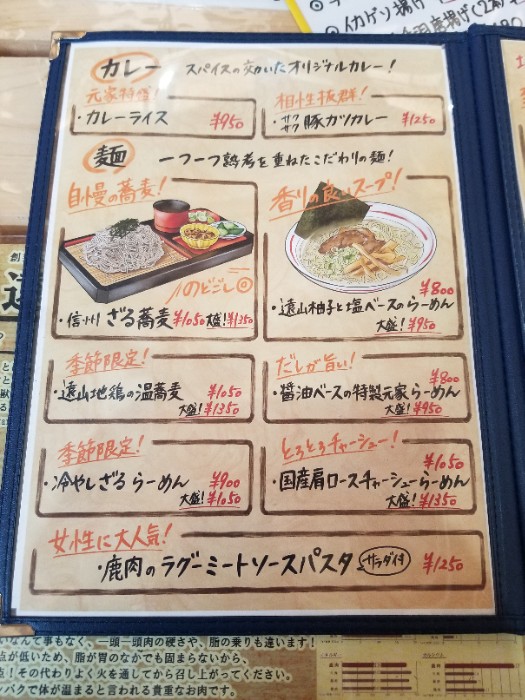 イカゲソ揚げ
カレー スパイスの効いたオリジナルカレー!
元家特盛!
・カレーライス ¥950
相性抜群!
・サクサク豚カツカレー ¥1250
麺 一つ一つ熟考を重ねたこだわりの麺!
自慢の蕎麦!
のどごし◎
・信州ざる蕎麦 ¥1050 大盛!¥1350
香りの良いスープ!
¥800
・遠山柚子と塩ベースのらーめん
大盛!¥950
季節限定!
・遠山地鶏の温蕎麦 ¥1050
大盛!¥1350
だしが旨い!
¥800
・醤油ベースの特製元家らーめん
大盛!¥950
季節限定!
・冷やしざるらーめん ¥900
大盛!¥1050
とろとろチャーシュー!
¥1050
・国産肩ロースチャーシューらーめん
大盛!¥1350
女性に大人気!
・鹿肉のラグーミートソースパスタ サラダ付 ¥1250
いなんて事もなく、一頭一頭肉の硬さや、脂の乗りも違います!
点が低いため、脂が胃のなかでも固まらないから、
点!その代わりよく火を通してから召し上がってください。
バクで体が温まると言われる貴重なお肉です。